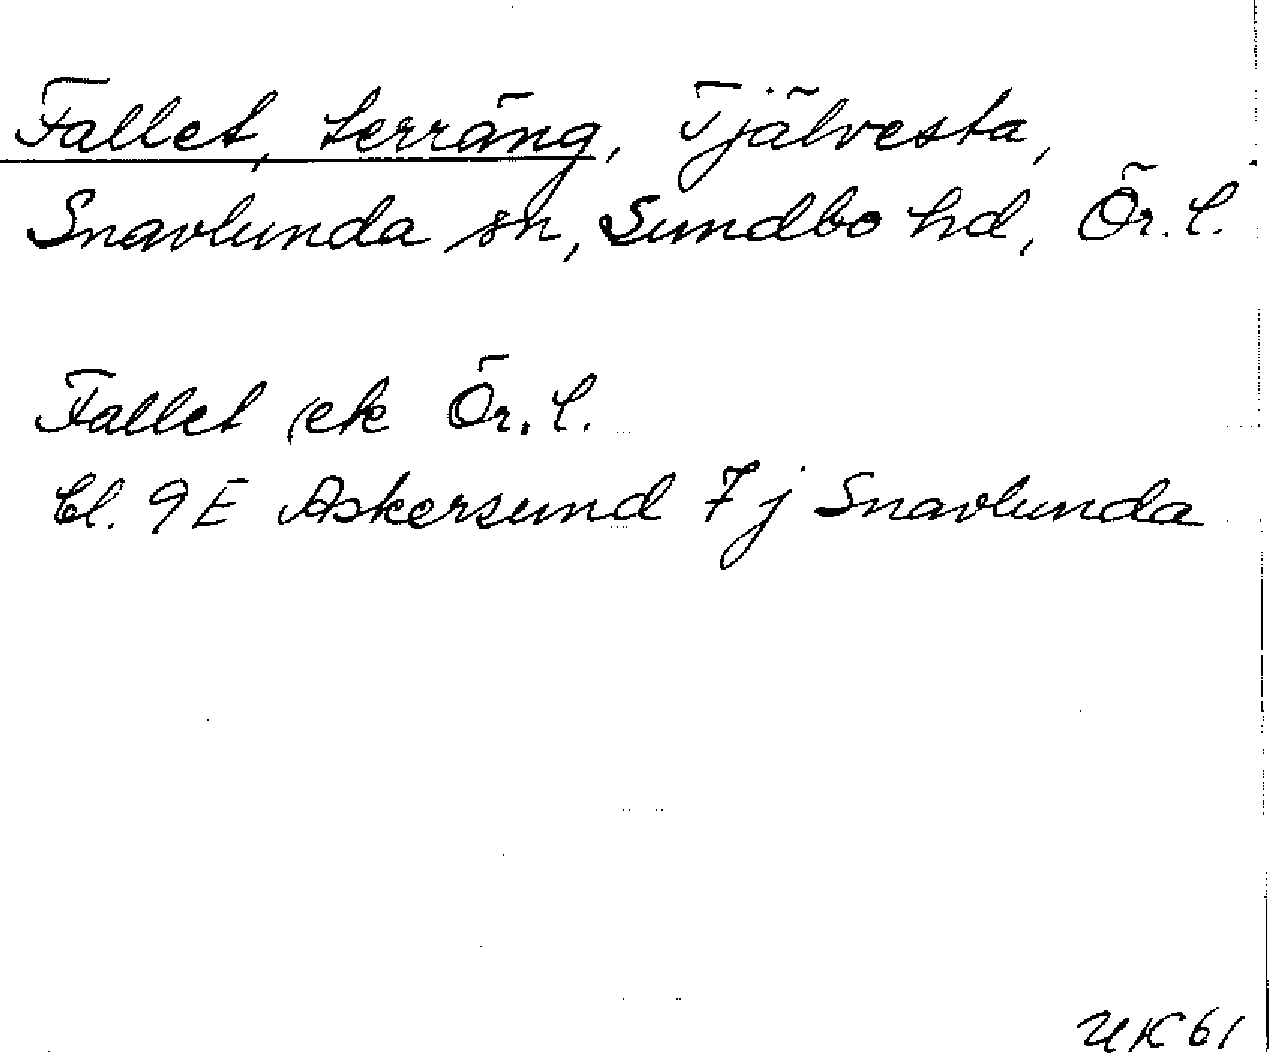 Fallet, terräng, Tjälvesta,
Snavlunda sn, Sundbo hd, Ör. l.
Fallet ek Ör. l.
bl. 9E Askersund 7j Snavlunda
UK 61